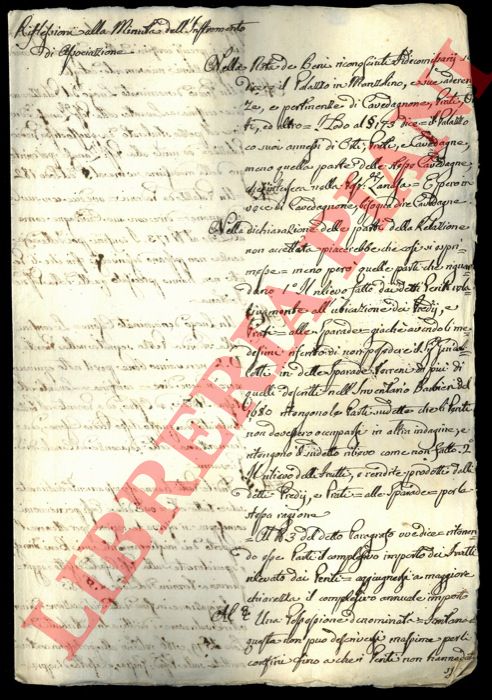 Riflessioni alla Minuta dell'Instromento
di Associazione
Nelle Note de Beni riconosciuti Fidecomissarij si
dice = il Palazzo in Manzolino, e sue aderen-
ze, e pertinenze di Cavedagnone, Prati, Or-
ti, ed altro = Lodo al § 173 dice = il Palazzo
co suoi annessi di Orti, Prati, e Cavedagne,
meno quella parte delle stesse Cavedagne,
nella = E però in
voce di Cavedagnone, bisogna dire Cavedagne
Nella dichiarazione delle parti della Relazione
non accettata piacerebbe che così si espri-
messe = meno però quelle parti che riguar-
dano 1° Il rilievo fatto dai detti Periti rela-
tivamente all'ubicazione dei Predij, e
Prati = alle Sparade = giachè avendo li me-
desimi riferito di non possedere il
in dette Sparade Terreni di più di
quelli descritti nell'Inventario Barbieri del
1680 tengono le Parti sudette che li Periti
non dovessero occuparsi in altra indagine, e
ritengono il sudetto rilievo come non fatto. 2°
Il rilievo delli frutti, e rendite prodotti dalli
detti Predij, e Prati = alle Sparade = per la
stessa ragione
= Al § 3 del detto Paragrafo ove dice = ritenen-
do esse Parti il complessivo importo dei frutti
rilevato dai Periti = aggiungasi a maggiore
chiarezza il complessivo annuale importo
Al §
Una Possessione denominata =
questa non può descriversi massime per li
confini fino a che i Periti non hanno dati
LIBRERIA PIANI